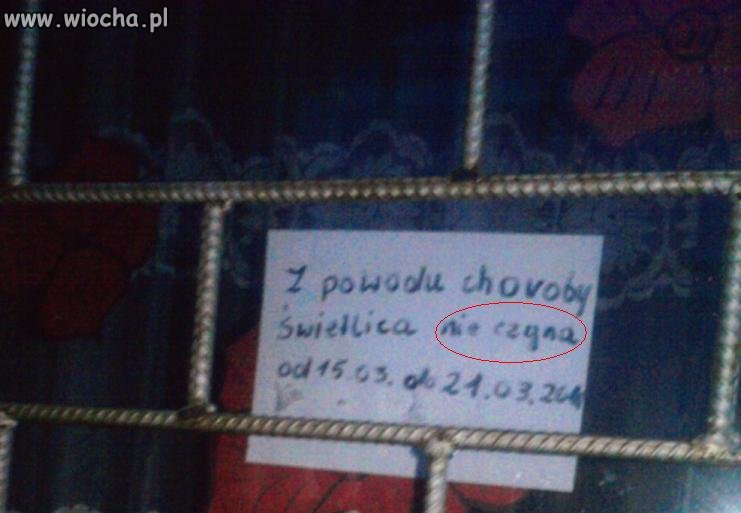 www.wiocha.pl
Z powodu choroby
świetlica nie czyna
od 15.03. do 21.03.